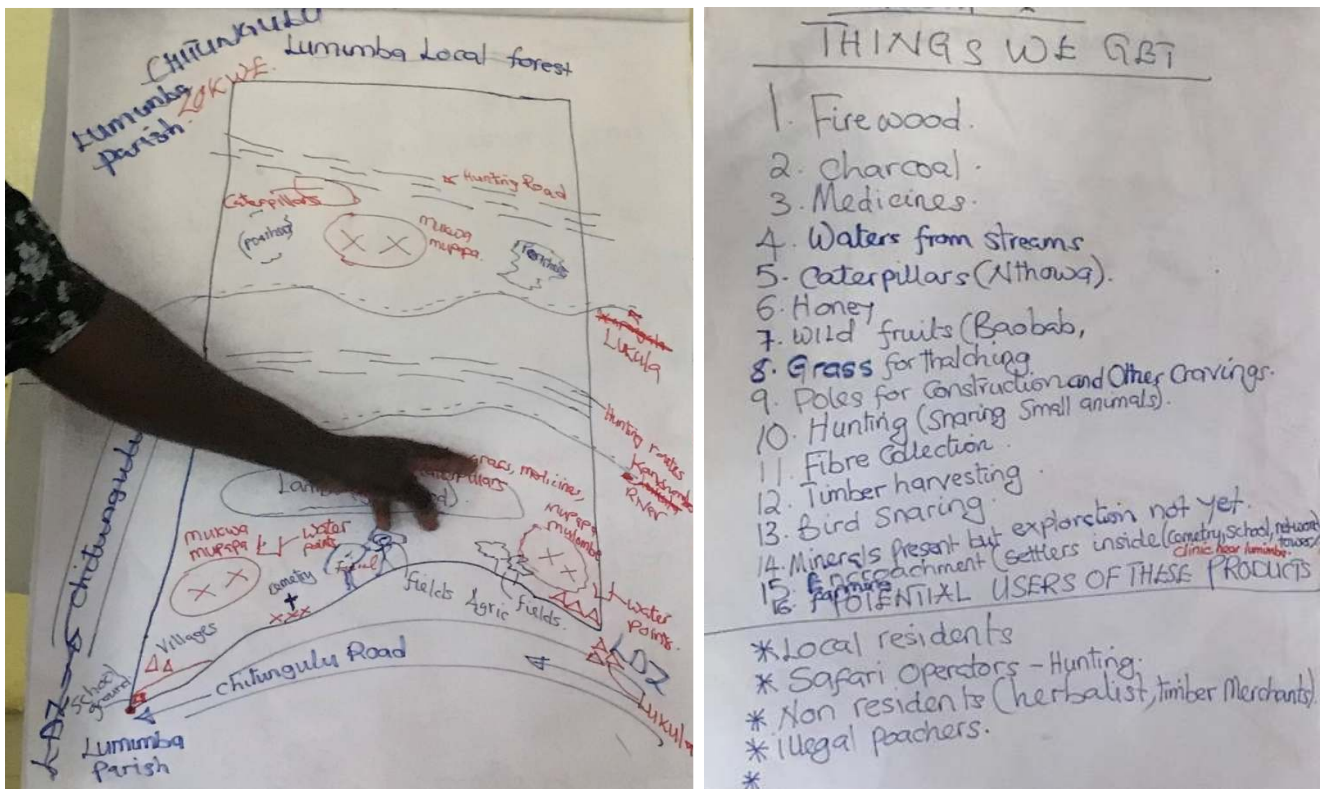 CHITUNGULU
Lumimba Local forest
LOKWE
Lumimba
Parish
Hunting Road
Caterpillars
mukwa
mupapa
Lukula
Hunting routes
River
grass, medicines,
Caterpillars
mupapa
mulombe
mukwa
mupapa
Water
points
cemetry
fields
Agric
fields.
water
points.
Villages
Chitungulu Road
School
ground
LDZ
Chitungulu
LDZ
Lukula
Lumimba
Parish
THINGS WE GET
1. Firewood.
2. Charcoal.
3. Medicines.
4. Waters from streams
5. Caterpillars (Nthowa).
6. Honey
7. Wild fruits (Baobab,
8. Grass for thatching
9. Poles for Construction and Other Cravings.
10. Hunting (Snaring Small animals).
11. Fibre Collection.
12. Timber harvesting.
13. Bird Snaring
14. Minerals Present but exploration not yet.
15. Encroachment (Settlers inside (cemetry, School, network tower)
clinic near lumimba.
16. Farming
POTENTIAL USERS OF THESE PRODUCTS
* Local residents
* Safari Operators - Hunting.
* Non residents (herbalist, timber Merchants).
* illegal poachers.
*